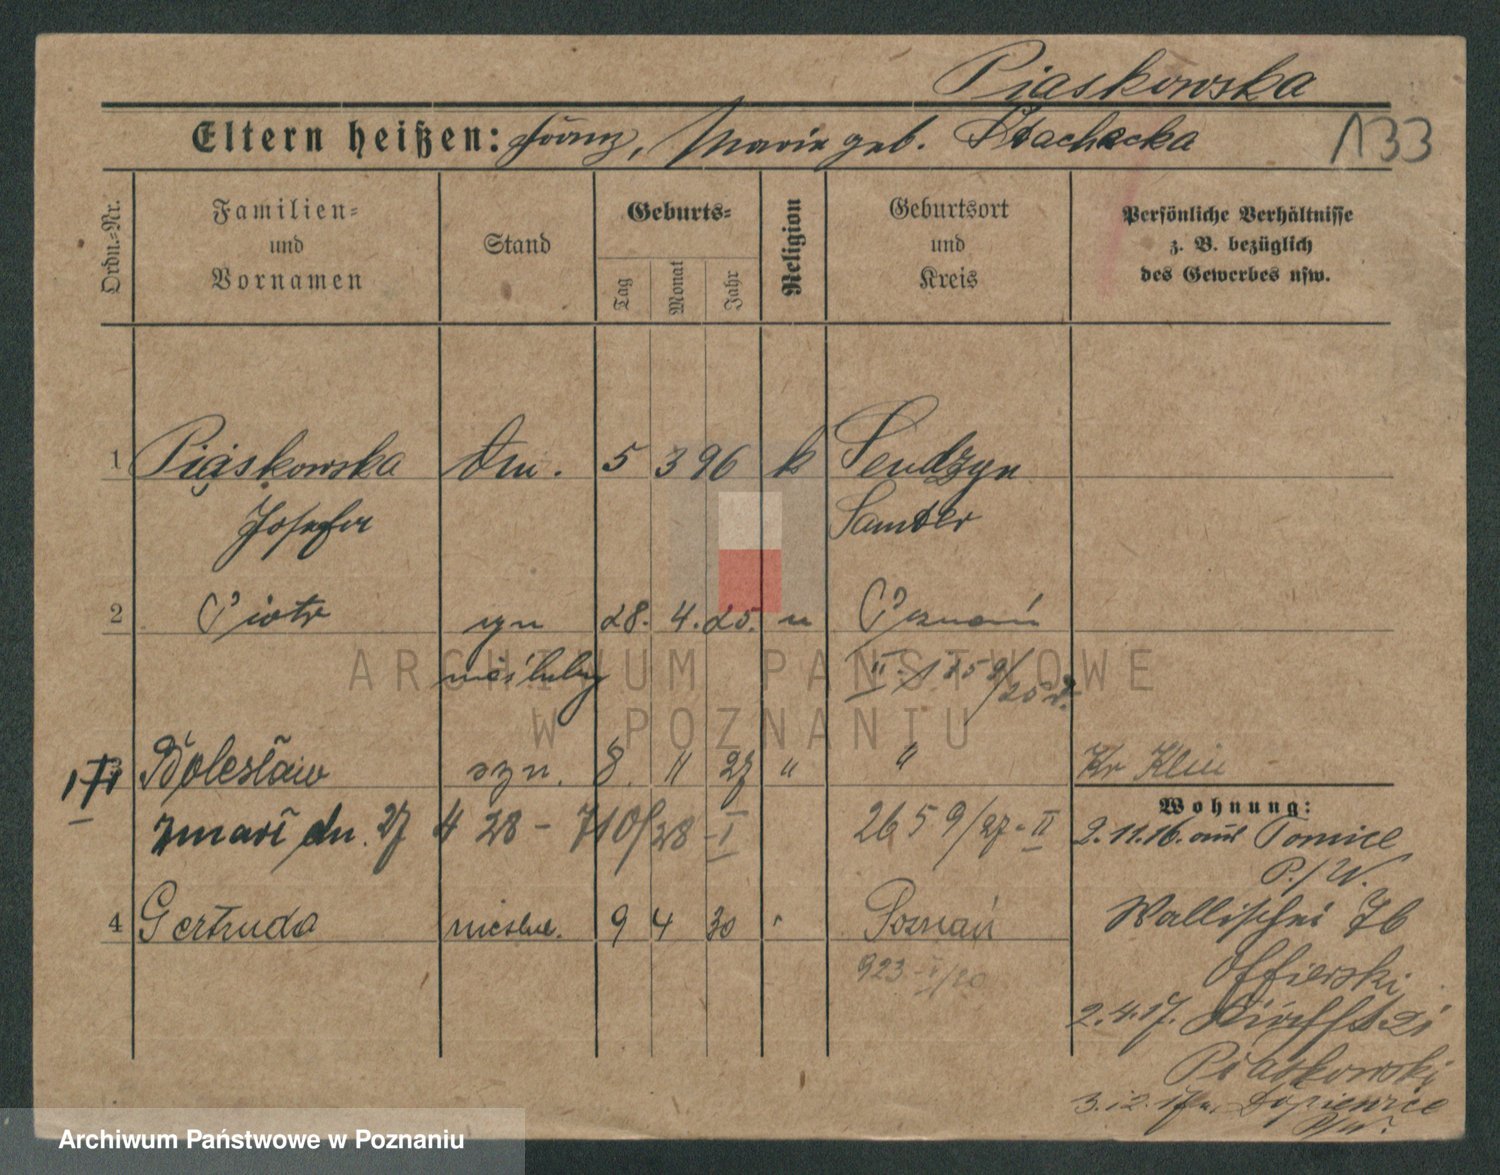 Piaskowska
Eltern heißen: Franz, Marie geb. Stachecka
133
Ordn.-Nr.
Familien-
und
Vornamen
Stand
Geburts-
Tag
Monat
Jahr
Religion
Geburtsort
und
Kreis
Persönliche Verhältnisse
z. B. bezüglich
des Gewerbes usw.
1 Piaskowska 5 3 96 k Sendzyn
Josefa Samter
2 Piotr syn 28. 4. 25. " Poznań
nieślubny II. 1259/25 r.
3 Bolesław syn. 8. 11 27 " "
zmarł dn. 27 4 28 - 710/28 - I 2659/27 - II
Wohnung:
2.11.16. aus Tomice
P./W.
4 Gertruda nieślub. 9 4 30 Poznań
Wallischei 76
923 - I/30
Offierski
2.4.17.
Piaskowski
3.12.17 n. Dopiewice
ARCHIWUM PAŃSTWOWE
W POZNANIU
Archiwum Państwowe w Poznaniu